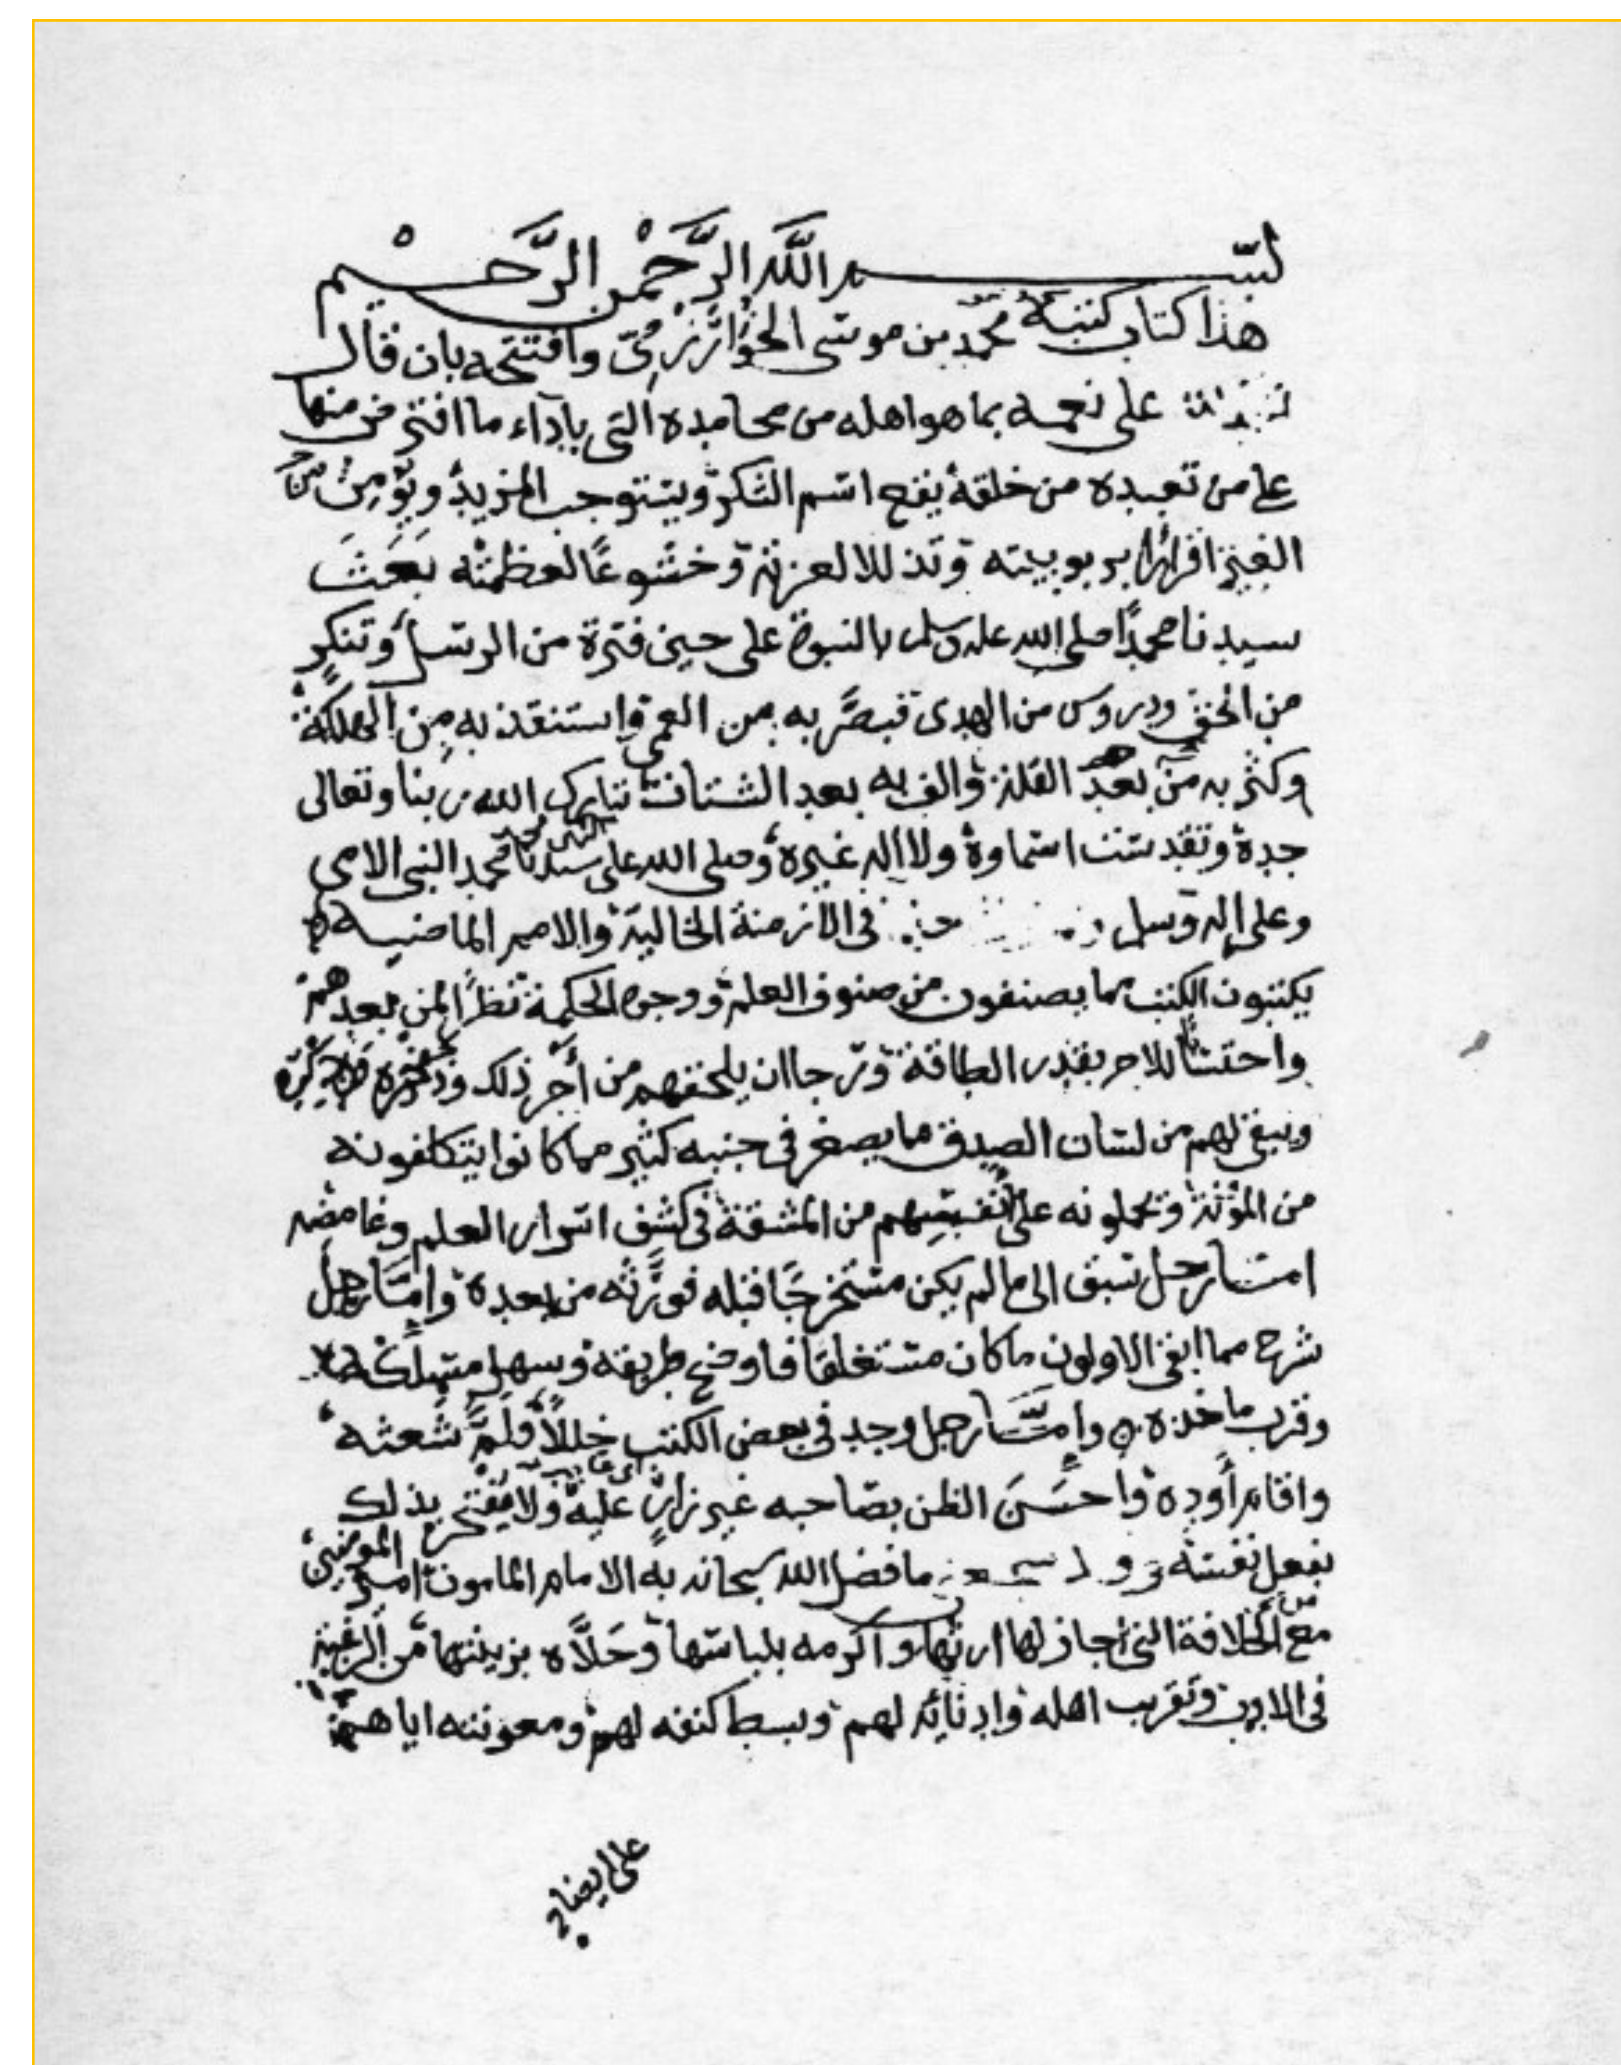 بسم الله الرحمن الرحيم
هذا كتاب كتبه محمد بن موسى الخوارزمي وافتتحه بان قال
على نعمه بما هو اهله من محامده التى باداء ما افترض منها
على من تعبده من خلقه يقع اسم الشكر ويستوجب المزيد ويؤمن من
الغير اقرارا بربوبيته وتذللا لعزته وخشوعا لعظمته بَعَثَ
سيدنا محمدا صلى الله عليه وسلم بالنبوة على حين فترة من الرسل وتنكر
من الحق ودروس من الهدى فبصّر به من العمى واستنقذ به من الهلكة
وكثر به من بعد القلة والف به بعد الشتات تبارك الله ربنا وتعالى
جده وتقدست اسماوه ولا اله غيره وصلى الله على سيدنا محمد النبى الامى
وعلى اله وسلم فى الازمنة الخالية والامم الماضيه
يكتبون الكتب مما يصنفون من صنوف العلم ووجوه الحكمة نظرا لمن بعدهم
واحتسابا للاجر بقدر الطاقة ورجا ان يلحقهم من أجر ذلك وذخره
ويبقى لهم من لسان الصدق ما يصغر فى جنبه كثير مما كانوا يتكلفونه
من المؤنة ويحملونه على انفسهم من المشقة فى كشف اسرار العلم وغامضه
امّا رجل سبق الى ما لم يكن مستخرجًا قبله فورّثه من بعده وإمّا رجل
شرح مما ابقى الاولون ما كان مستغلقا فاوضح طريقه وسهل مسلكه
وقرب ماخذه وإمّا رجل وجد فى بعض الكتب خللاً فلمَّ شعثه
واقام أوده واحسَنَ الظن بصاحبه غير زارٍ عليه ولا مفتخر بذلك
بفعل نفسه ما فضل الله سبحانه به الامام المامون امير المومنين
مع الخلافة التى اجاز لها ارثها واكرمه بلباسها وحَلَّاه بزينتها من الرغبة
فى الادب وتقريب اهله وادنائه لهم وبسط كنفه لهم ومعونته اياهم
على ايضاح